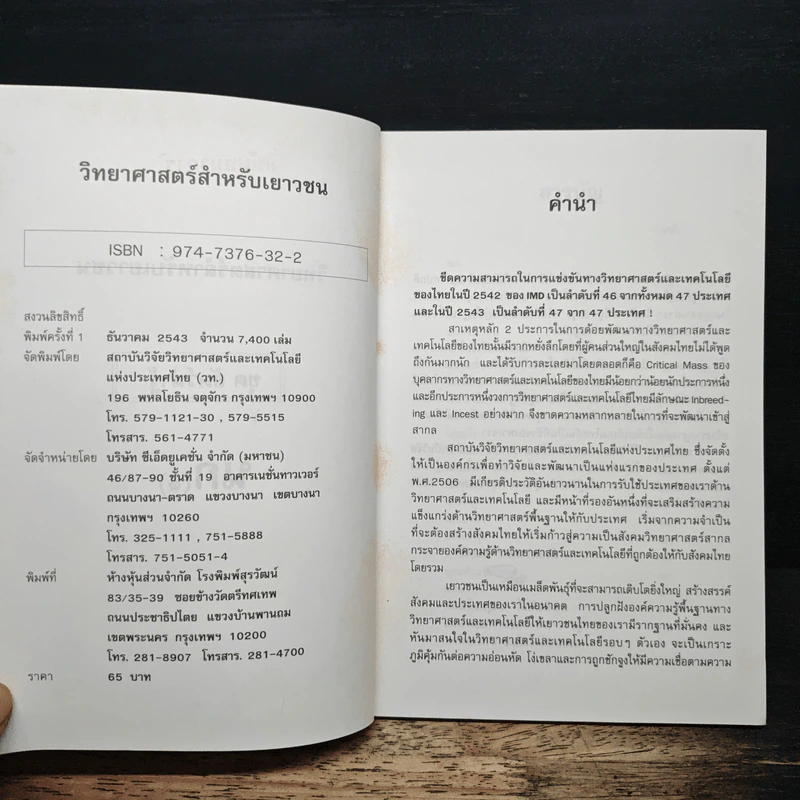 วิทยาศาสตร์สำหรับเยาวชน
ISBN : 974-7376-32-2
สงวนลิขสิทธิ์
พิมพ์ครั้งที่ 1 ธันวาคม 2543 จำนวน 7,400 เล่ม
จัดพิมพ์โดย สถาบันวิจัยวิทยาศาสตร์และเทคโนโลยี
แห่งประเทศไทย (วท.)
196 พหลโยธิน จตุจักร กรุงเทพฯ 10900
โทร. 579-1121-30 , 579-5515
โทรสาร. 561-4771
จัดจำหน่ายโดย บริษัท ซีเอ็ดยูเคชั่น จำกัด (มหาชน)
46/87-90 ชั้นที่ 19 อาคารเนชั่นทาวเวอร์
ถนนบางนา-ตราด แขวงบางนา เขตบางนา
กรุงเทพฯ 10260
โทร. 325-1111 , 751-5888
โทรสาร. 751-5051-4
พิมพ์ที่ ห้างหุ้นส่วนจำกัด โรงพิมพ์สุรวัฒน์
83/35-39 ซอยข้างวัดตรีทศเทพ
ถนนประชาธิปไตย แขวงบ้านพานถม
เขตพระนคร กรุงเทพฯ 10200
โทร. 281-8907 โทรสาร. 281-4700
ราคา 65 บาท
คำนำ
ขีดความสามารถในการแข่งขันทางวิทยาศาสตร์และเทคโนโลยี
ของไทยในปี 2542 ของ IMD เป็นลำดับที่ 46 จากทั้งหมด 47 ประเทศ
และในปี 2543 เป็นลำดับที่ 47 จาก 47 ประเทศ !
สาเหตุหลัก 2 ประการในการด้อยพัฒนาทางวิทยาศาสตร์และ
เทคโนโลยีของไทยนั้นมีรากหยั่งลึกโดยที่ผู้คนส่วนใหญ่ในสังคมไทยไม่ได้พูด
ถึงกันมากนัก และได้รับการละเลยมาโดยตลอดก็คือ Critical Mass ของ
บุคลากรทางวิทยาศาสตร์และเทคโนโลยีของไทยมีน้อยกว่าน้อยนักประการหนึ่ง
และอีกประการหนึ่งวงการวิทยาศาสตร์และเทคโนโลยีไทยมีลักษณะ Inbreed-
ing และ Incest อย่างมาก จึงขาดความหลากหลายในการที่จะพัฒนาเข้าสู่
สากล
สถาบันวิจัยวิทยาศาสตร์และเทคโนโลยีแห่งประเทศไทย ซึ่งจัดตั้ง
ให้เป็นองค์กรเพื่อทำวิจัยและพัฒนาเป็นแห่งแรกของประเทศ ตั้งแต่
พ.ศ.2506 มีเกียรติประวัติอันยาวนานในการรับใช้ประเทศของเราด้าน
วิทยาศาสตร์และเทคโนโลยี และมีหน้าที่รองอันหนึ่งที่จะเสริมสร้างความ
แข็งแกร่งด้านวิทยาศาสตร์พื้นฐานให้กับประเทศ เริ่มจากความจำเป็น
ที่จะต้องสร้างสังคมไทยให้เริ่มก้าวสู่ความเป็นสังคมวิทยาศาสตร์สากล
กระจายองค์ความรู้ด้านวิทยาศาสตร์และเทคโนโลยีที่ถูกต้องให้กับสังคมไทย
โดยรวม
เยาวชนเป็นเหมือนเมล็ดพันธุ์ที่จะสามารถเติบโตยิ่งใหญ่ สร้างสรรค์
สังคมและประเทศของเราในอนาคต การปลูกฝังองค์ความรู้พื้นฐานทาง
วิทยาศาสตร์และเทคโนโลยีให้เยาวชนไทยของเรามีรากฐานที่มั่นคง และ
หันมาสนใจในวิทยาศาสตร์และเทคโนโลยีรอบๆ ตัวเอง จะเป็นเกราะ
ภูมิคุ้มกันต่อความอ่อนหัด โง่เขลาและการถูกชักจูงให้มีความเชื่อตามความ